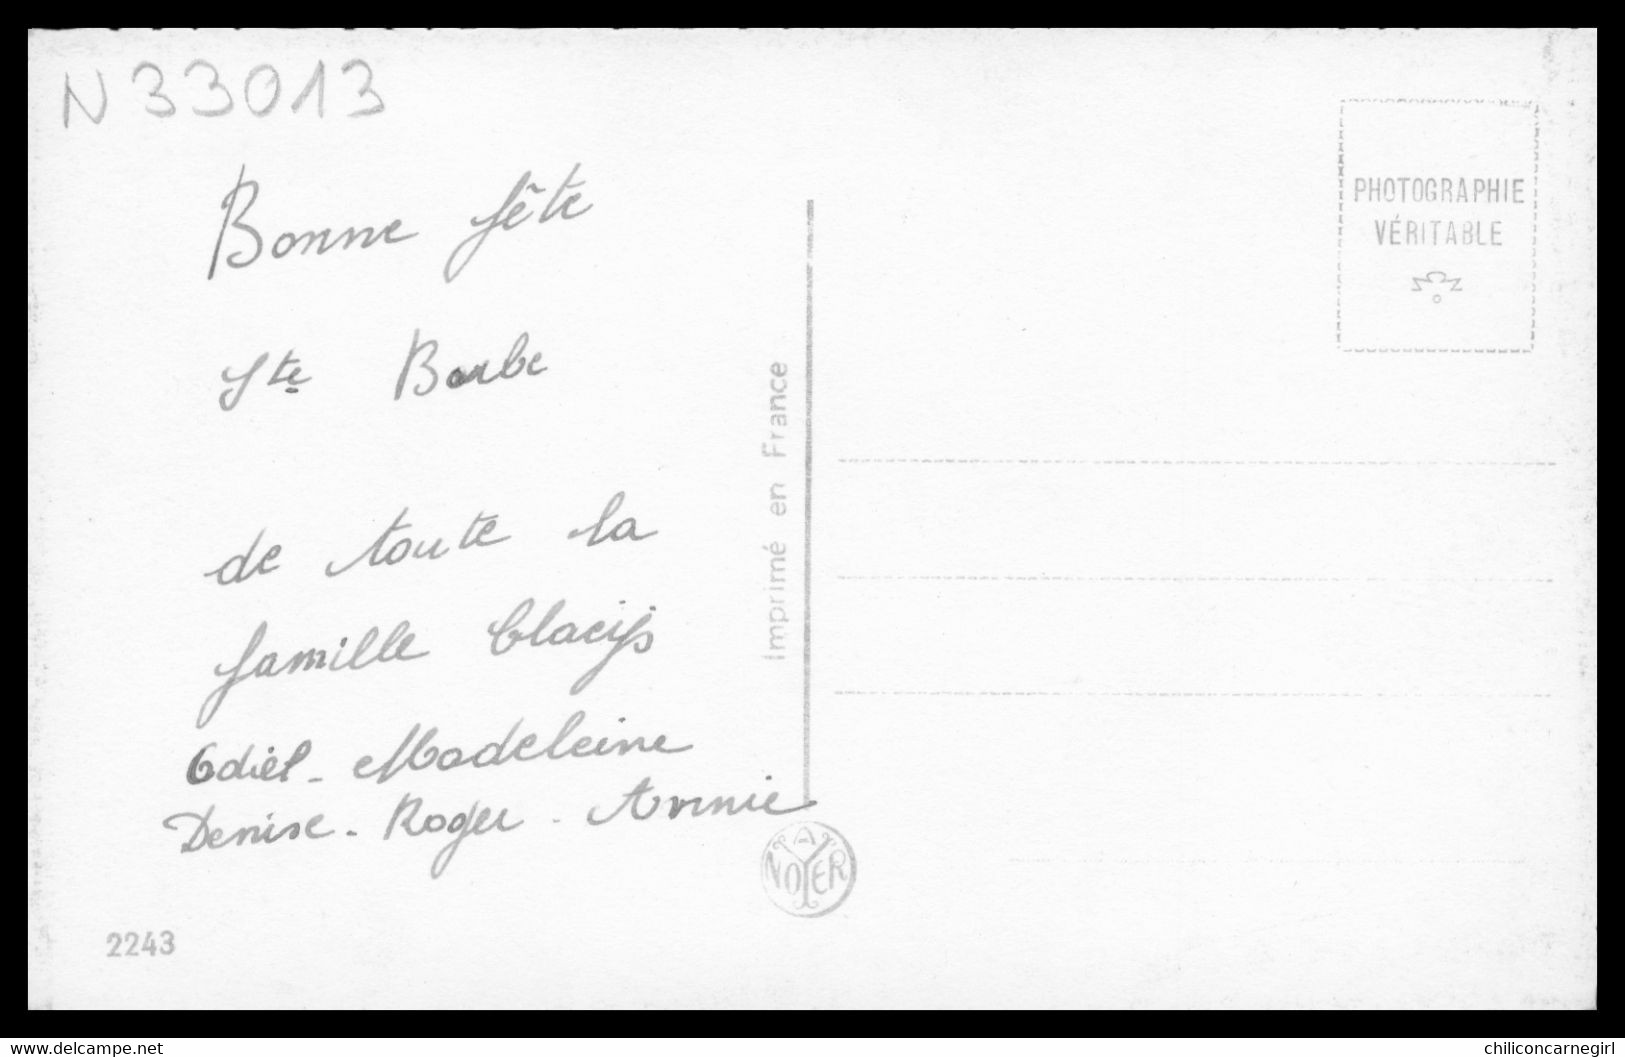 N33013
Bonne fête
Ste Barbe
de toute la
famille Claeijs
Odiel - Madeleine
Denise - Roger - Annie
2243
Imprimé en France
A NOYER
PHOTOGRAPHIE
VÉRITABLE
www.delcampe.net
chiliconcarnegirl